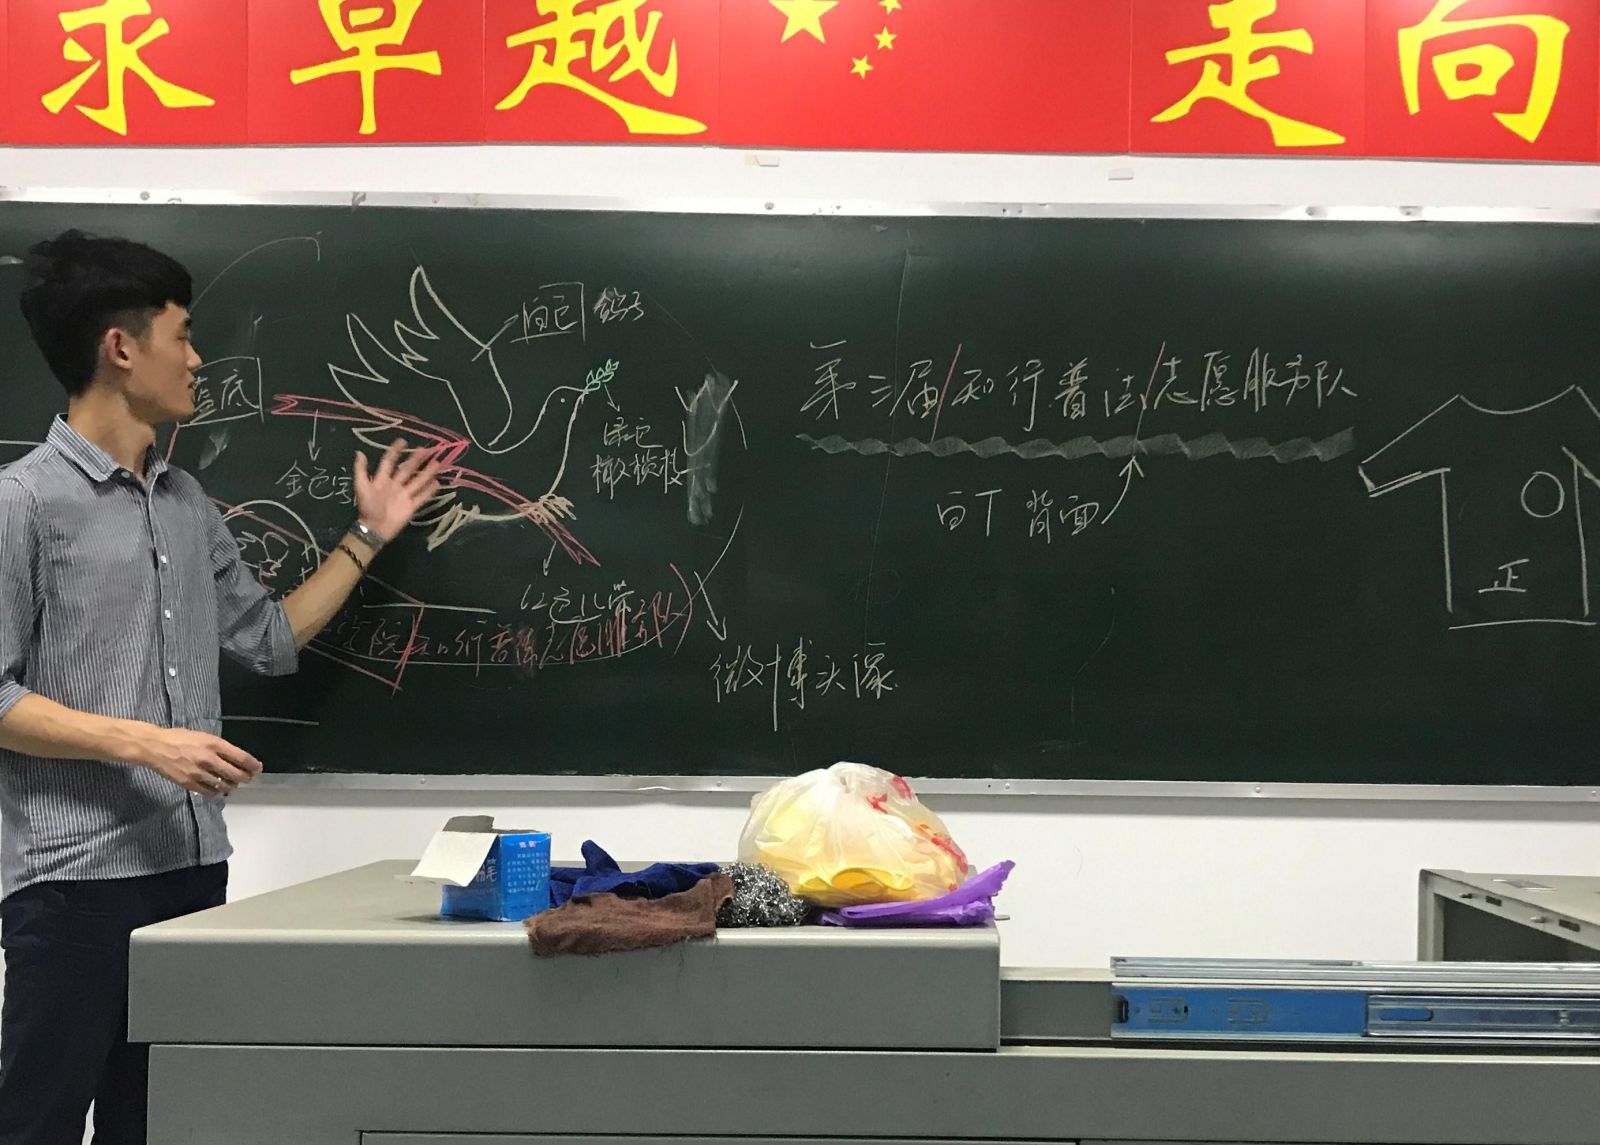 求卓越 走向
白色 鸽子
蓝底
绿色
橄榄枝
金色字
红色飘带
学院知行普法志愿服务队
微博头像
第三届/知行普法/志愿服务队
白T 背面
正